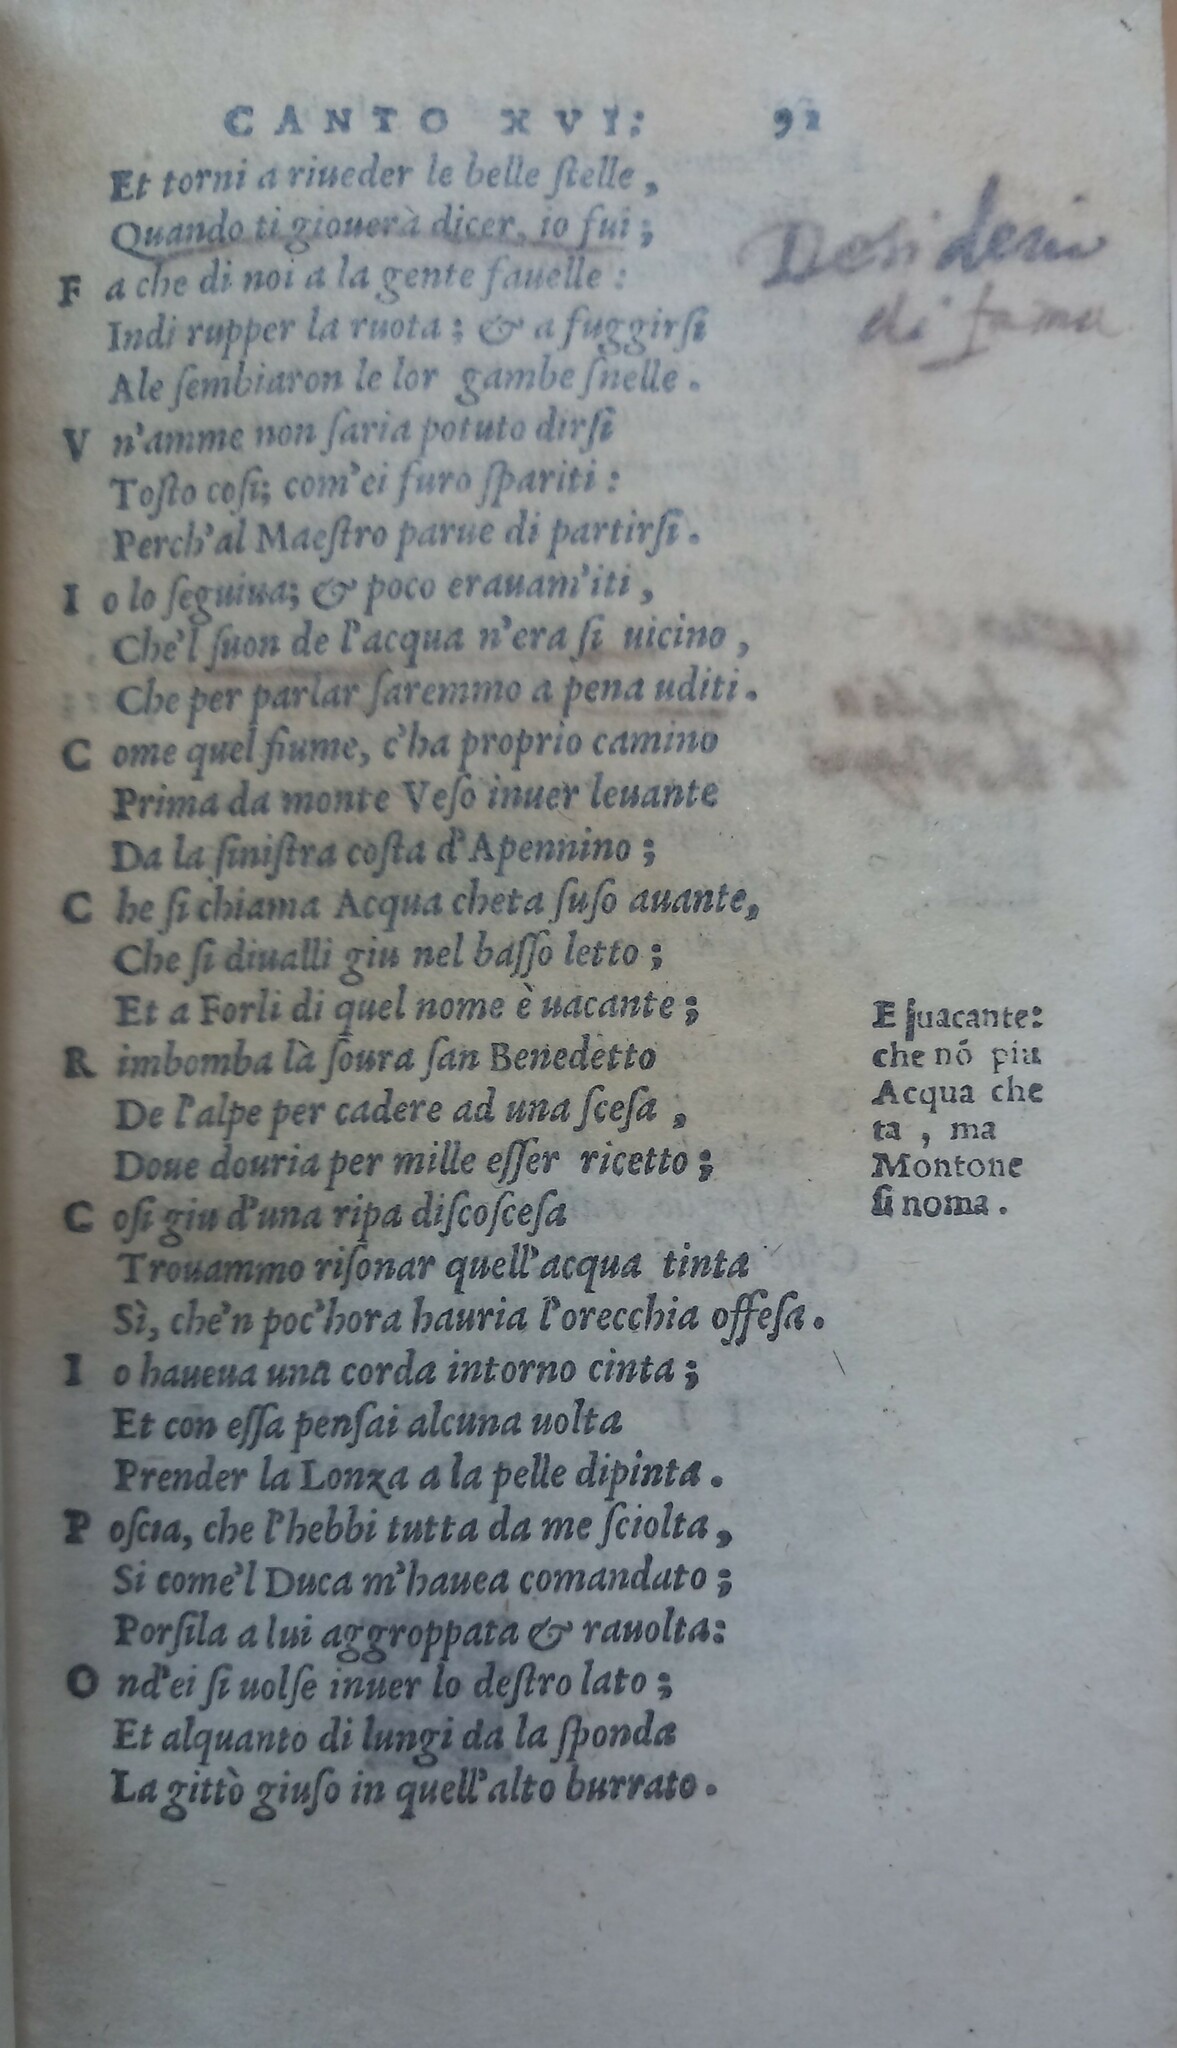 CANTO XVI: 92
Et torni a riueder le belle ſtelle,
Quando ti giouerà dicer, io fui;
F a che di noi a la gente fauelle:
Indi rupper la ruota; & a fuggirſi
Ale ſembiaron le lor gambe ſnelle.
V n'amme non ſaria potuto dirſi
Toſto coſi; com'ei furo ſpariti:
Perch'al Maeſtro parue di partirſi.
I o lo ſeguiua; & poco erauam'iti,
Che'l ſuon de l'acqua n'era ſi uicino,
Che per parlar ſaremmo a pena uditi.
C ome quel fiume, c'ha proprio camino
Prima da monte Veſo inuer leuante
Da la ſiniſtra coſta d'Apennino;
C he ſi chiama Acqua cheta ſuſo auante,
Che ſi diualli giu nel baſſo letto;
Et a Forli di quel nome è uacante;
R imbomba là ſoura ſan Benedetto
De l'alpe per cadere ad una ſceſa,
Doue douria per mille eſſer ricetto;
C oſi giu d'una ripa diſcoſceſa
Trouammo riſonar quell'acqua tinta
Sì, che'n poc'hora hauria l'orecchia offeſa.
I o haueua una corda intorno cinta;
Et con eſſa penſai alcuna uolta
Prender la Lonza a la pelle dipinta.
P oſcia, che l'hebbi tutta da me ſciolta,
Si come'l Duca m'hauea comandato;
Porſila a lui aggroppata & rauolta:
O nd'ei ſi uolſe inuer lo deſtro lato;
Et alquanto di lungi da la ſponda
La gittò giuſo in quell'alto burrato.
Desiderio
di fama
E ſuacante:
che nó piu
Acqua che
ta, ma
Montone
ſi noma.